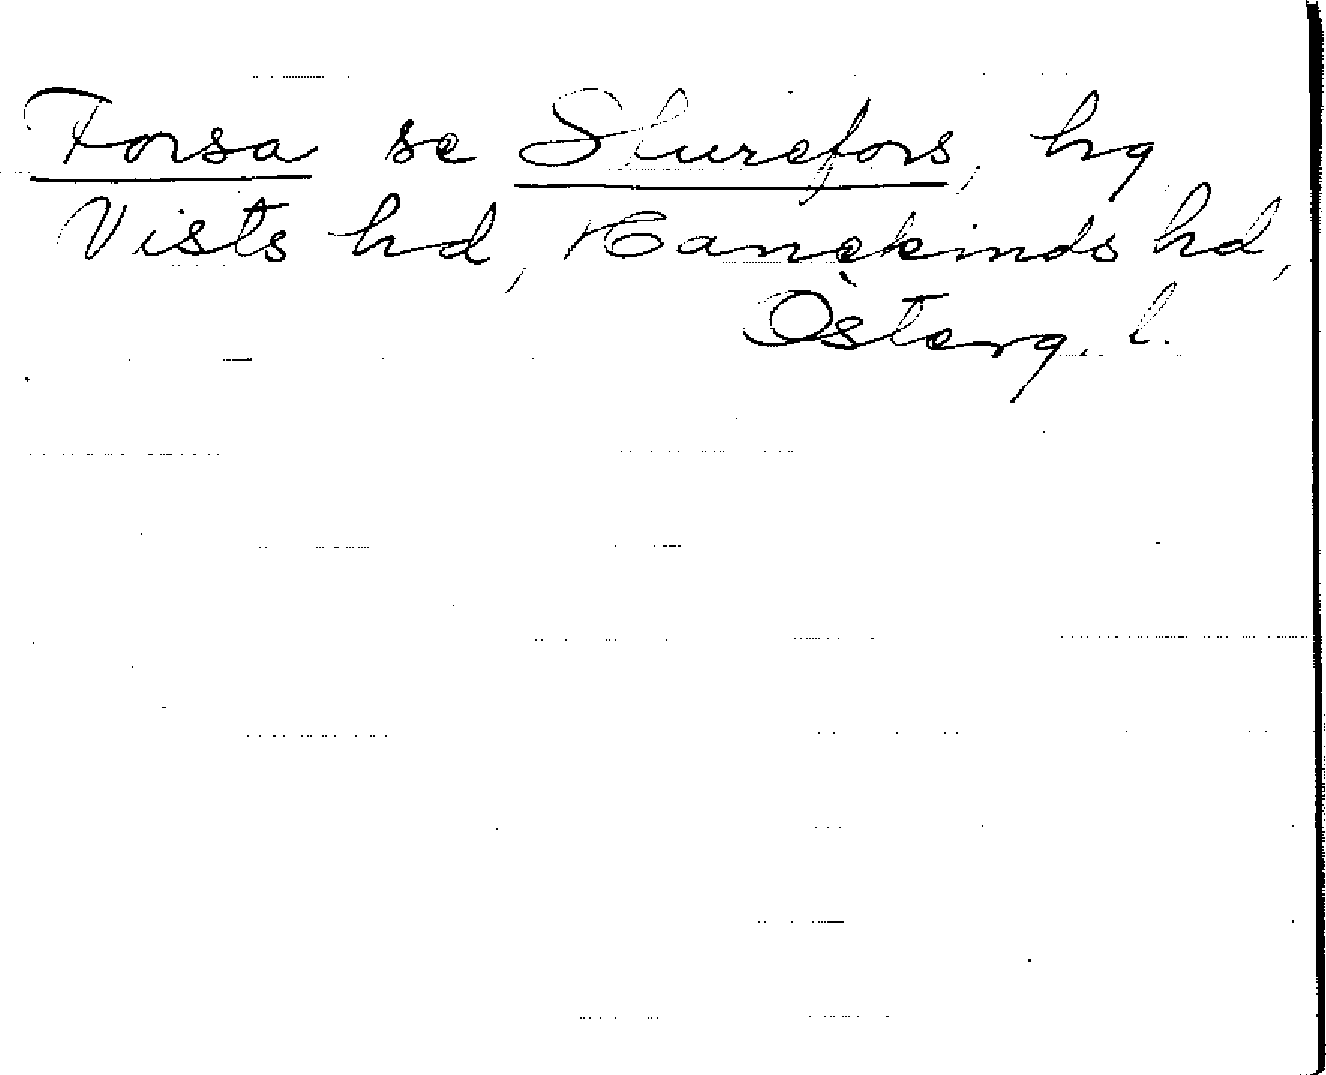 Forsa se Sturefors, hg
Vists hd, Hanekinds hd,
Österg. l.